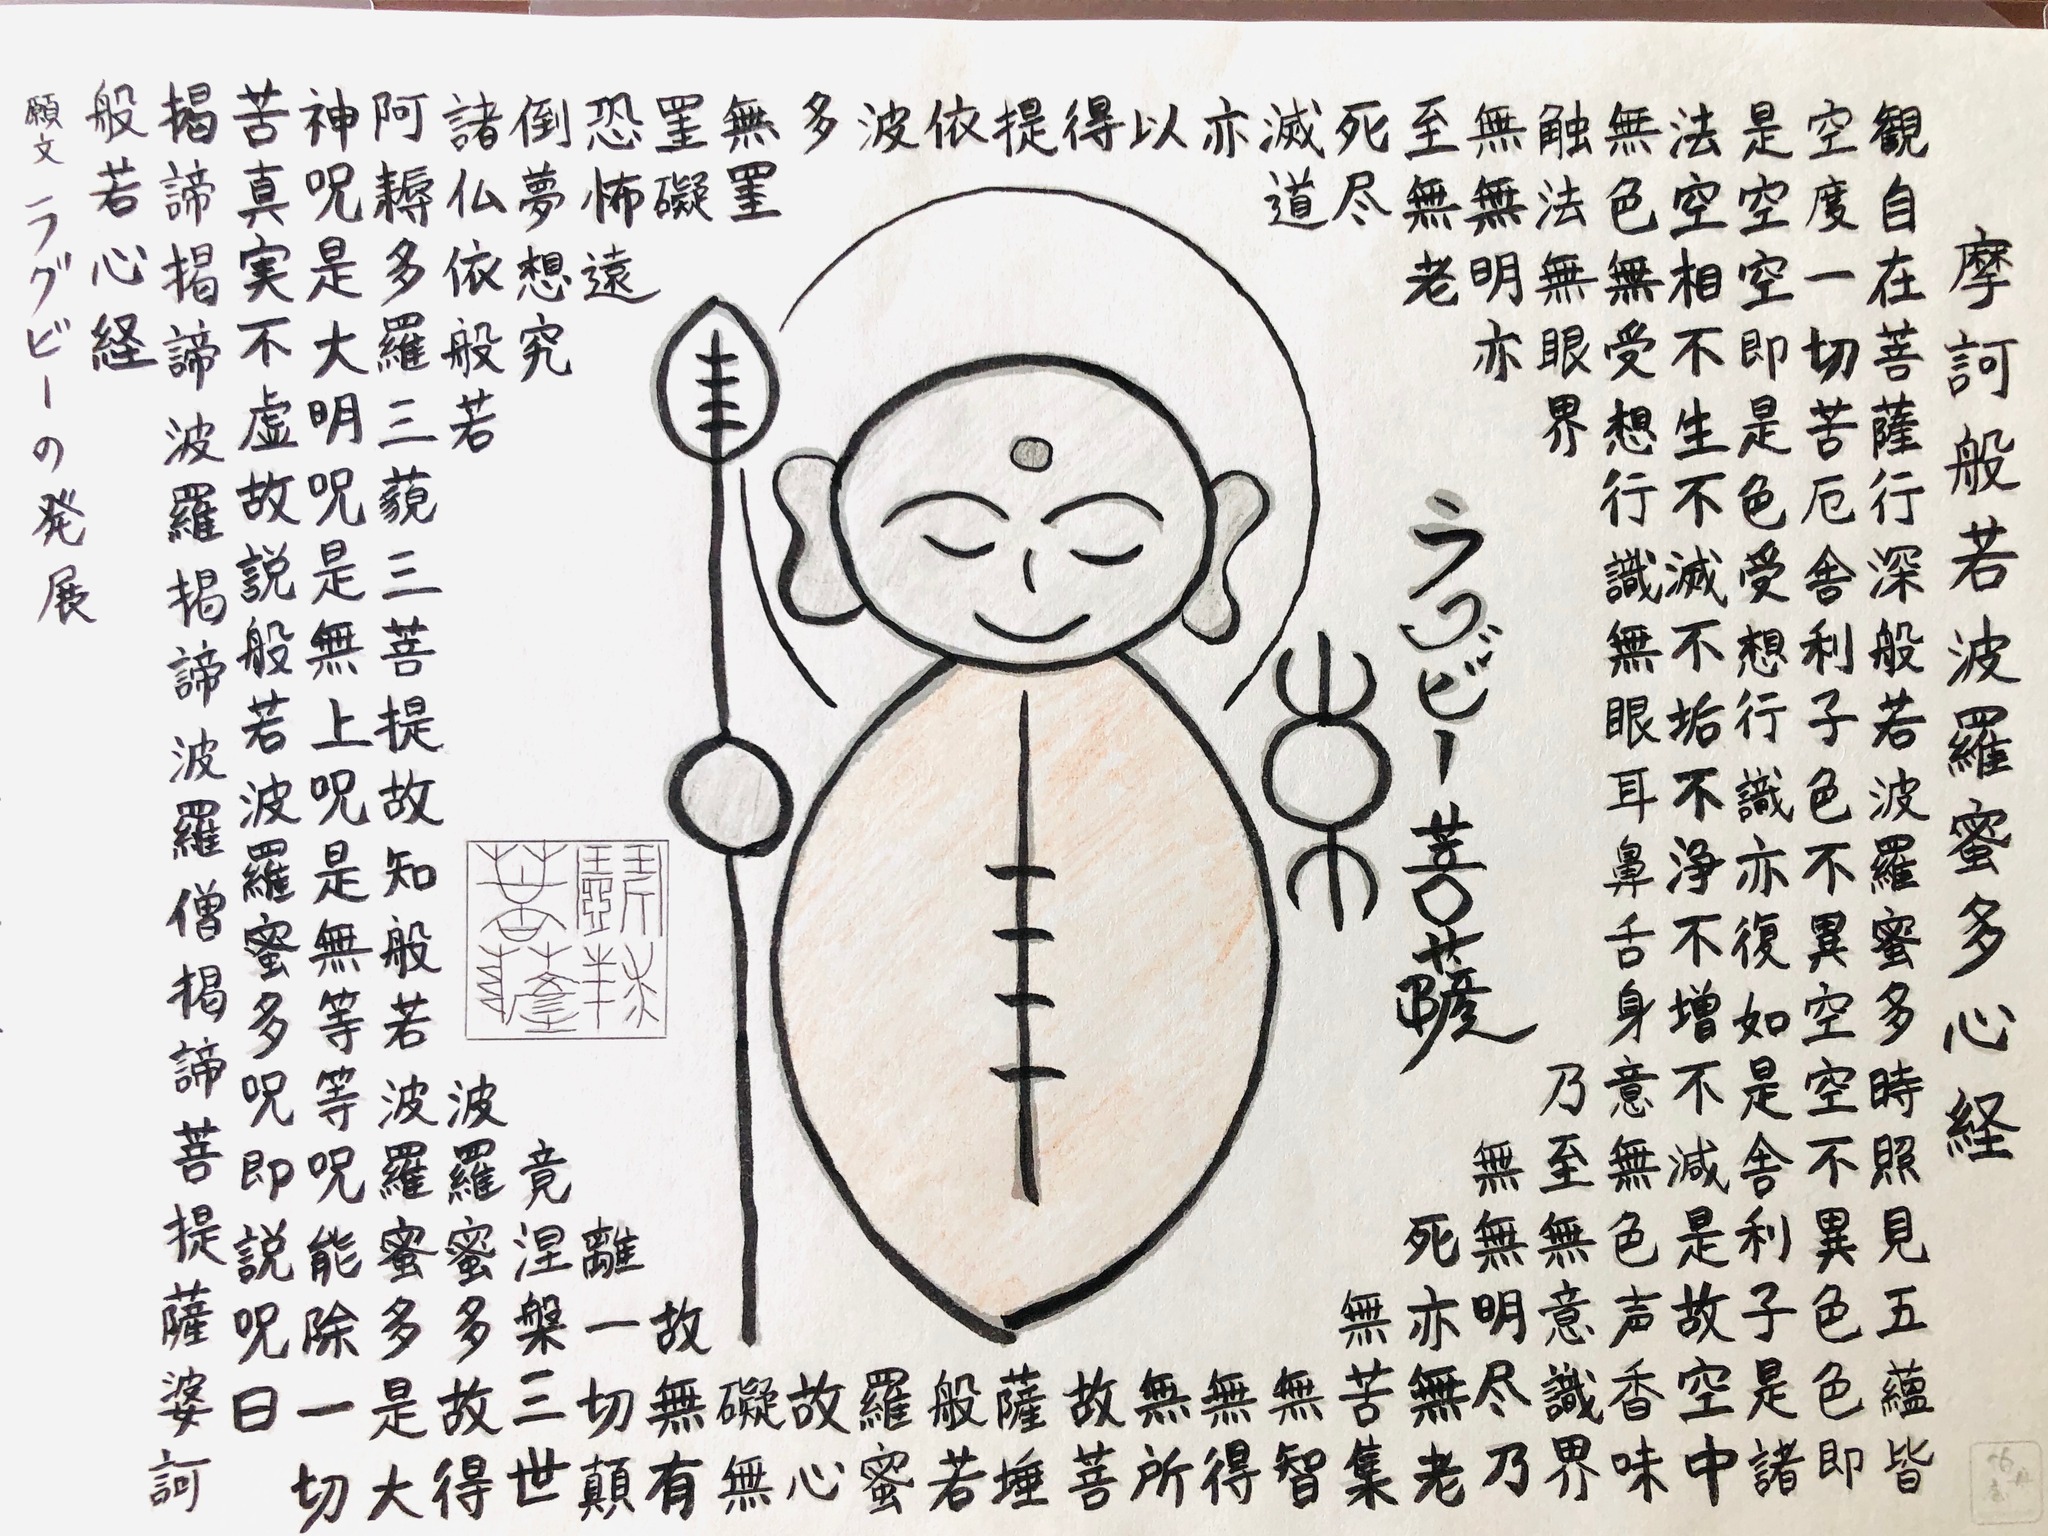 摩訶般若波羅蜜多心経
観自在菩薩行深般若波羅蜜多時照見五蘊皆
空度一切苦厄舎利子色不異空空不異色色即
是空空即是色受想行識亦復如是舎利子是諸
法空相不生不滅不垢不浄不増不減是故空中
無色無受想行識無眼耳鼻舌身意無色声香味
触法無眼界乃至無意識界
無無明亦無無明尽乃
至無老死亦無老
死尽無苦集
滅道無智
亦無得
以無所
得故菩
提薩埵
依般若
波羅蜜
多故心
無罣礙無
罣礙故無有
恐怖遠離一切顛
倒夢想究竟涅槃三世
諸仏依般若波羅蜜多故得
阿耨多羅三藐三菩提故知般若波羅蜜多是大
神呪是大明呪是無上呪是無等等呪能除一切
苦真実不虚故説般若波羅蜜多呪即説呪曰
揭諦揭諦波羅揭諦波羅僧揭諦菩提薩婆訶
般若心経
願文 ラグビーの発展
ラグビー菩薩